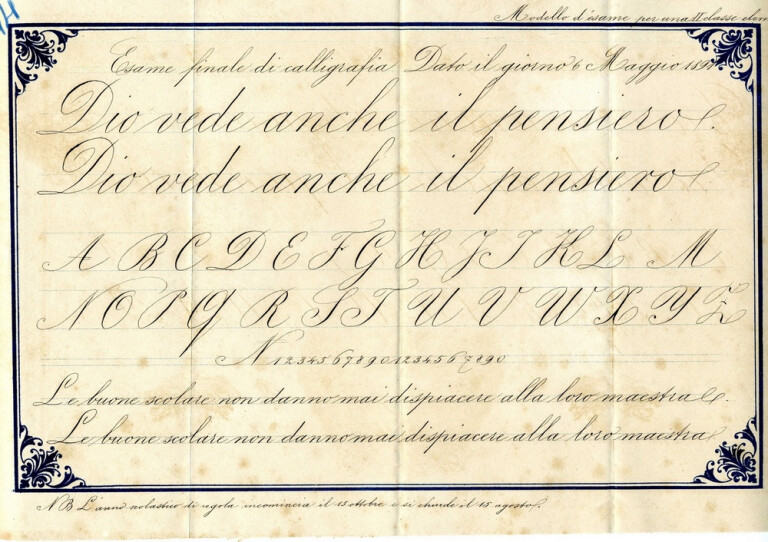 Modello d'esame per una II classe elem
Esame finale di calligrafia Dato il giorno 6 Maggio 189
Dio vede anche il pensiero.
Dio vede anche il pensiero
A B C D E F G H J I K L M
N O P Q R S T U V W X Y Z
N 1234567890 1234567890
Le buone scolare non danno mai dispiacere alla loro maestra.
Le buone scolare non danno mai dispiacere alla loro maestra
NB L'anno scolastico di regola incomincia il 15 ottobre e si chiude il 15 agosto.